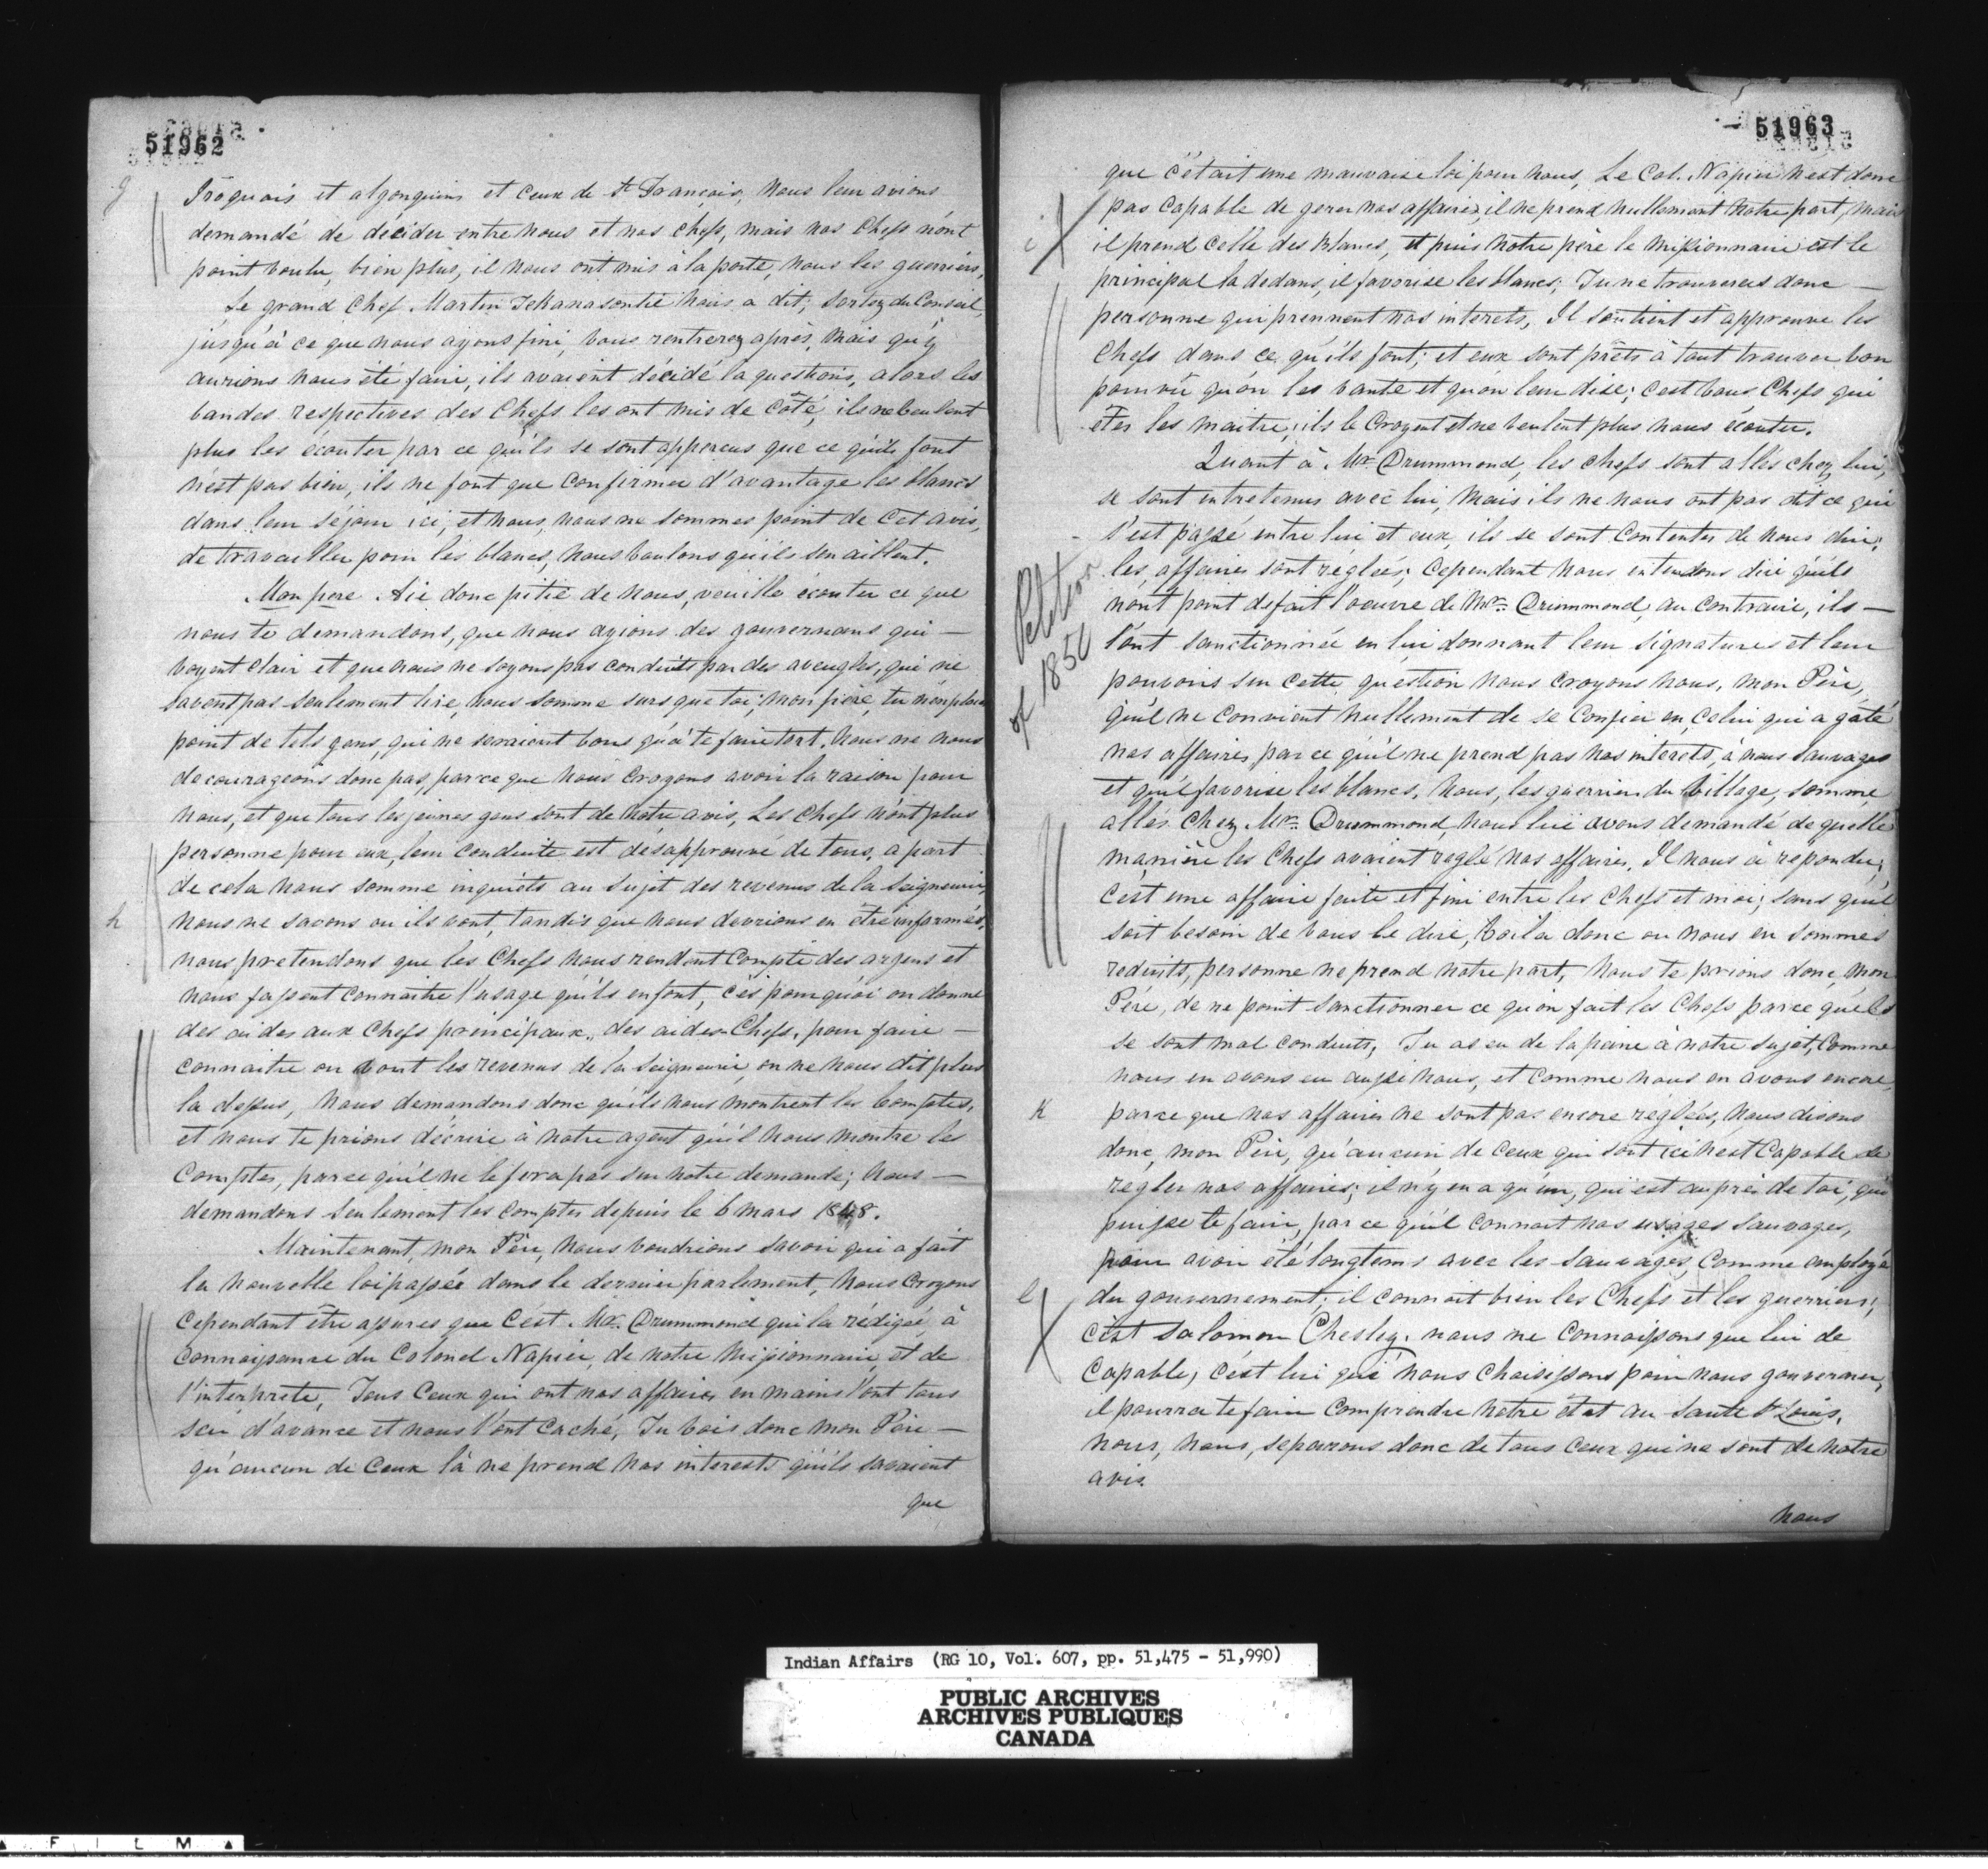 51962
g
Iroquois et algonquins et ceux de St Francois, Nous leur avions
demandé de décider entre nous et nos chefs, mais nos Chefs n'ont
point voulu, bien plus, il nous ont mis à la porte, nous les guerriers,
Le grand Chef Martin Tekanasontié nous a dit; Sortez du Conseil,
jusqu'à ce que nous ayons fini, vous rentrerez après, mais qu'y
aurions nous été faire, ils avaient décidé la questions, alors les
bandes respectives des Chefs les ont mis de côté, ils ne veulent
plus les écouter par ce qu'ils se sont apperçus que ce qu'ils font
n'est pas bien, ils ne font que confirmer d'avantage les blancs
dans leur séjour ici, et nous, nous ne sommes point de cet avis,
de travailler pour les blancs, nous voulons qu'ils s'en aillent.
Mon pere Aie donc pitié de nous, veuille écouter ce que
nous te demandons, que nous ayions des gouvernans qui —
voyent clair et que nous ne soyons pas conduits par des aveugles, qui ne
savent pas seulement lire, nous somme surs que toi, mon père, tu n'en places
point de tels gens, qui ne seraient bons qu'à te faire tort. Nous ne nous
decourageons donc pas, parce que nous croyons avoir la raison pour
nous, et que tous les jeunes gens sont de notre avis, Les Chefs n'ont plus
personne pour eux, leur conduite est désapprouvé de tous, a part
de cela nous somme inquiets au sujet des revenus de la Seigneurie,
h
nous ne savons ou ils vont, tandis que nous devrions en être informés,
nous pretendons que les Chefs nous rendent compte des argens et
nous fassent connaitre l'usage qu'ils en font, c'es pourquoi on donne
des aides aux Chefs principaux, des aides-Chefs, pour faire —
connaitre ou vont les revenus de la Seigneurie, on ne nous dit plus
la dessus, Nous demandons donc qu'ils nous montrent les Comptes,
et nous te prions d'écrire à notre agent qu'il nous montre les
Comptes, parce qu'il ne le fera pas sur notre demande; Nous —
demandons seulement les comptes depuis le 6 mars 1848.
Maintenant, mon Père, nous voudrions savoir qui a fait
la nouvelle loi passée dans le dernier parlement, Nous Croyons
Cependant être assures que c'est Mr. Drummond qui la rédigée, à
Connaissance du Colonel Napier, de notre Missionnaire, et de
l'interprete, Tous Ceux qui ont nos affaires en mains l'ont tous
sçu d'avance et nous l'ont caché, Tu vois donc mon Père —
qu'aucun de ceux là ne prend nos interests qu'ils savaient
que
51963
que c'était une mauvaise loi pour nous, Le Col. Napier n'est donc
pas capable de gerer nos affaires, il ne prend nullement notre part, mais
il prend celle des blancs, et puis notre père le missionnaire est le
principal la dedans, il favorise les blancs; Tu ne trouveras donc —
personne qui prennent nos interets, Il soutient et approuve les
Chefs dans ce qu'ils font; et eux sont prêts à tout trouver bon
pourvû qu'on les vante et qu'on leur dise; c'est vous Chefs qui
êtes les maitre, ils le Croyent et ne veulent plus nous écouter.
Quant à Mr. Drummond, les chefs sont allés chez lui,
se sont entretenus avec lui, mais ils ne nous ont pas dit ce qui
s'est passé entre lui et eux, ils se sont contentés de nous dire;
les affaires sont réglées; Cependant nous entendons dire qu'ils
Petition
of 1850
n'ont point defait l'oeuvre de Mr. Drummond, au contraire, ils —
l'ont sanctionnée en lui donnant leur signatures et leur
pouvoirs sur cette question nous croyons nous, mon Père,
qu'il ne convient nullement de se confier en celui qui a gaté
nos affaires, par ce qu'il ne prend pas nos interets, à nous sauvages
et qu'il favorise les blancs. Nous, les guerriers du village, somme
allés chez Mr. Drummond nous lui avons demandé de quelle
manière les Chefs avaient reglé nos affaires. Il nous à repondu;
c'est une affaire faite et fini entre les Chefs et moi; sans qu'il
soit besoin de vous le dire, Voila donc ou nous en sommes
reduits, personne ne prend notre part, nous te prions donc, mon
Père, de ne point sanctionner ce qu'on fait les Chefs parce qu'ils
se sont mal conduits, Tu as eu de la peine à notre sujet, Comme
nous en avons eu aussi nous, et comme nous en avons encore,
K
parce que nos affaires ne sont pas encore réglées, nous disons
donc, mon Père, qu'aucun de ceux qui sont ici n'est Capable de
regler nos affaires; il n'y en a qu'un, qui est auprès de toi, qui
puisse le faire, par ce qu'il connait nos usages sauvages,
pour avoir été longtems avec les sauvages, comme employé
l
du gouvernement, il connait bien les Chefs et les guerriers;
c'est Salomon Chesley. nous ne connaissons que lui de
Capable, c'est lui que nous choisissons pour nous gouverner,
il pourra te faire comprendre notre état au Sault St Louis,
nous, nous, separons donc de tous ceux qui ne sont de notre
avis.
nous
Indian Affairs (RG 10, Vol. 607, pp. 51,475 - 51,990)
PUBLIC ARCHIVES
ARCHIVES PUBLIQUES
CANADA
FILM